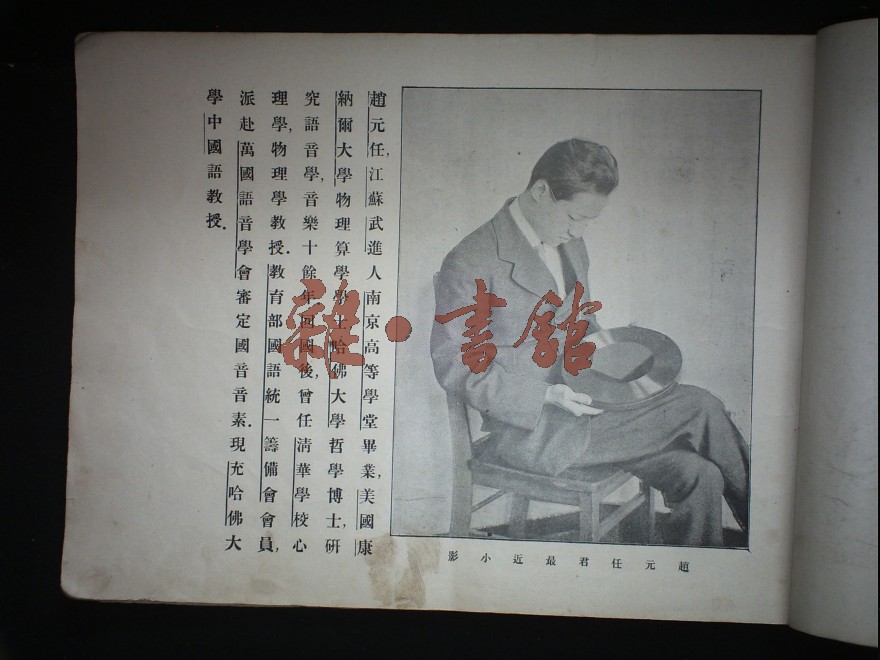 趙元任,江蘇武進人南京高等學堂畢業,美國康
納爾大學物理算學學士哈佛大學哲學博士,研
究語音學,音樂十餘年回國後,曾任清華學校心
理學,物理學教授.教育部國語統一籌備會會員,
派赴萬國語音學會審定國音音素.現充哈佛大
學中國語教授.
趙元任君最近小影
雜·書館